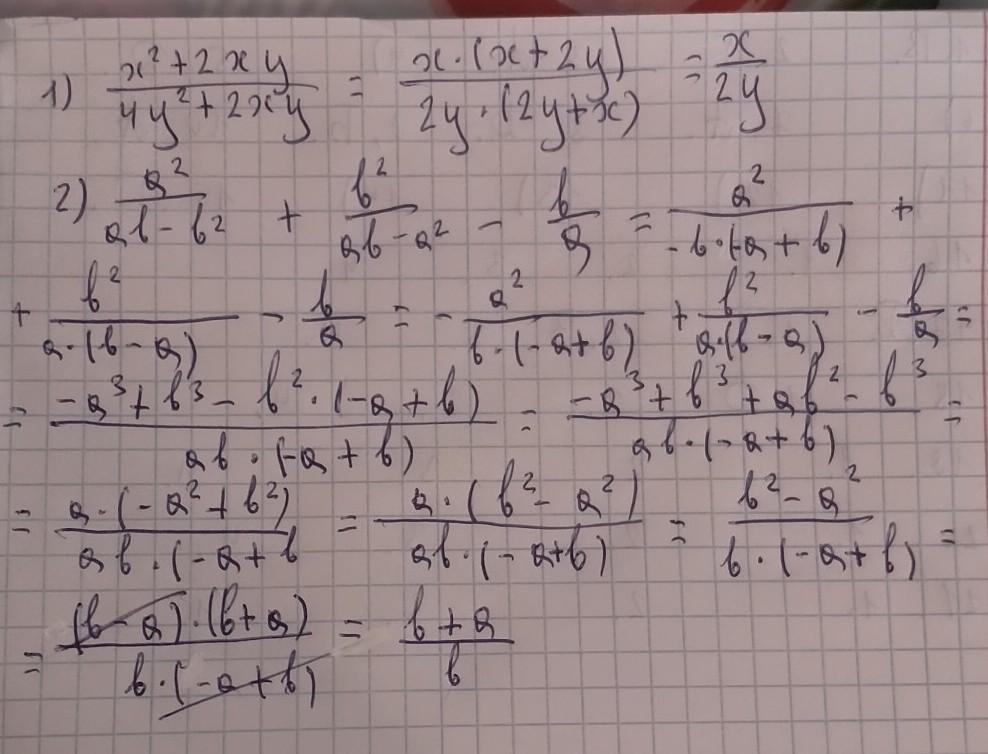 1) (x² + 2xy)/(4y² + 2xy) = (x · (x + 2y))/(2y · (2y + x)) = x/(2y)
2) a²/(ab - b²) + b²/(ab - a²) - b/a = a²/(-b · (-a + b)) +
+ b²/(a · (b - a)) - b/a = - a²/(b · (-a + b)) + b²/(a · (b - a)) - b/a =
= (-a³ + b³ - b² · (-a + b))/(ab · (-a + b)) = (-a³ + b³ + ab² - b³)/(ab · (-a + b)) =
= (a · (-a² + b²))/(ab · (-a + b) = (a · (b² - a²))/(ab · (-a + b)) = (b² - a²)/(b · (-a + b)) =
= ((b - a) · (b + a))/(b · (-a + b)) = (b + a)/b